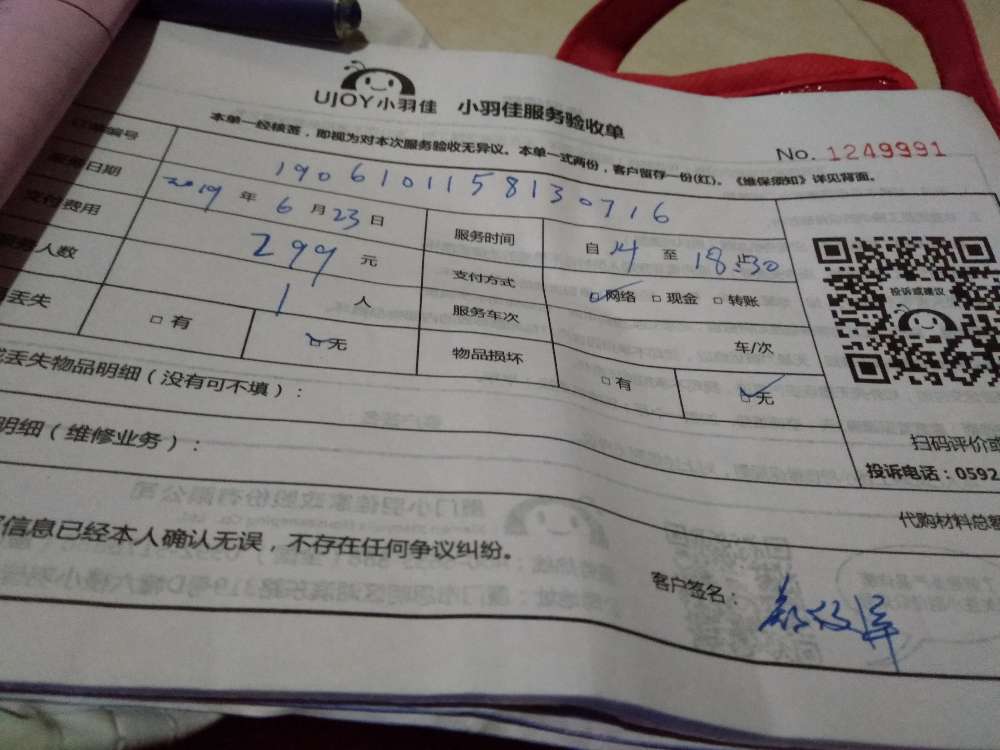 UJOY小羽佳 小羽佳服务验收单
本单一经核签，即视为对本次服务验收无异议。本单一式两份，客户留存一份(红)。《维保须知》详见背面。
No. 1249991
编号 1906101158130716
日期 2019年6月23日 服务时间 自14至18点30
支付费用 299元 支付方式 网络 现金 转账
人数 1人 服务车次 车/次
丢失 有 无 物品损坏 有 无
丢失物品明细（没有可不填）：
明细（维修业务）：
投诉或建议
扫码评价或
投诉电话：0592
代购材料总
信息已经本人确认无误，不存在任何争议纠纷。
客户签名：